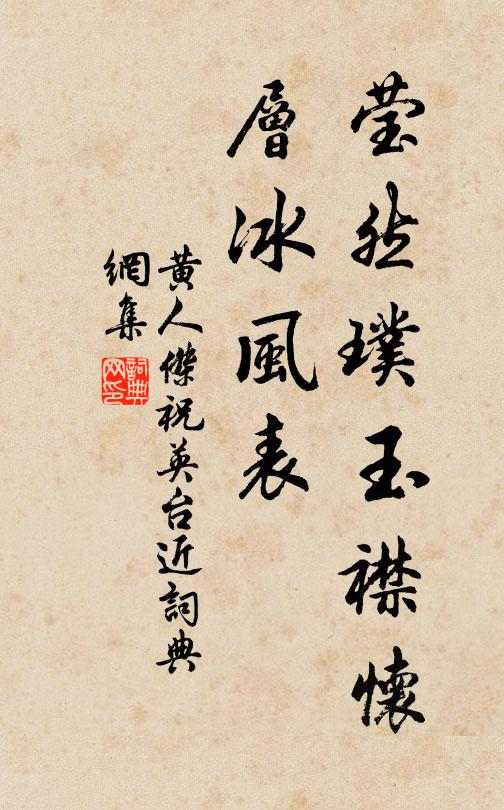 莹然璞玉襟懷
層冰風表
黄人傑祝英台近詞典
網集
詞典
网印